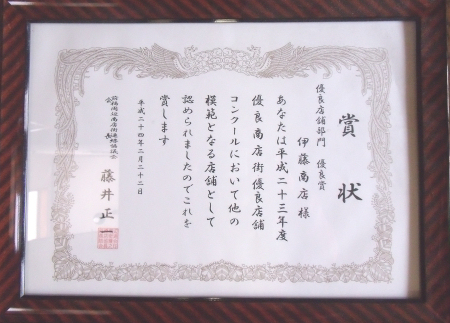 賞状
優良店舗部門 優良賞
伊藤商店様
あなたは平成二十三年度
優良商店街優良店舗
コンクールにおいて他の
模範となる店舗として
認められましたのでこれを
賞します
平成二十四年二月二十二日
会長
藤井正一